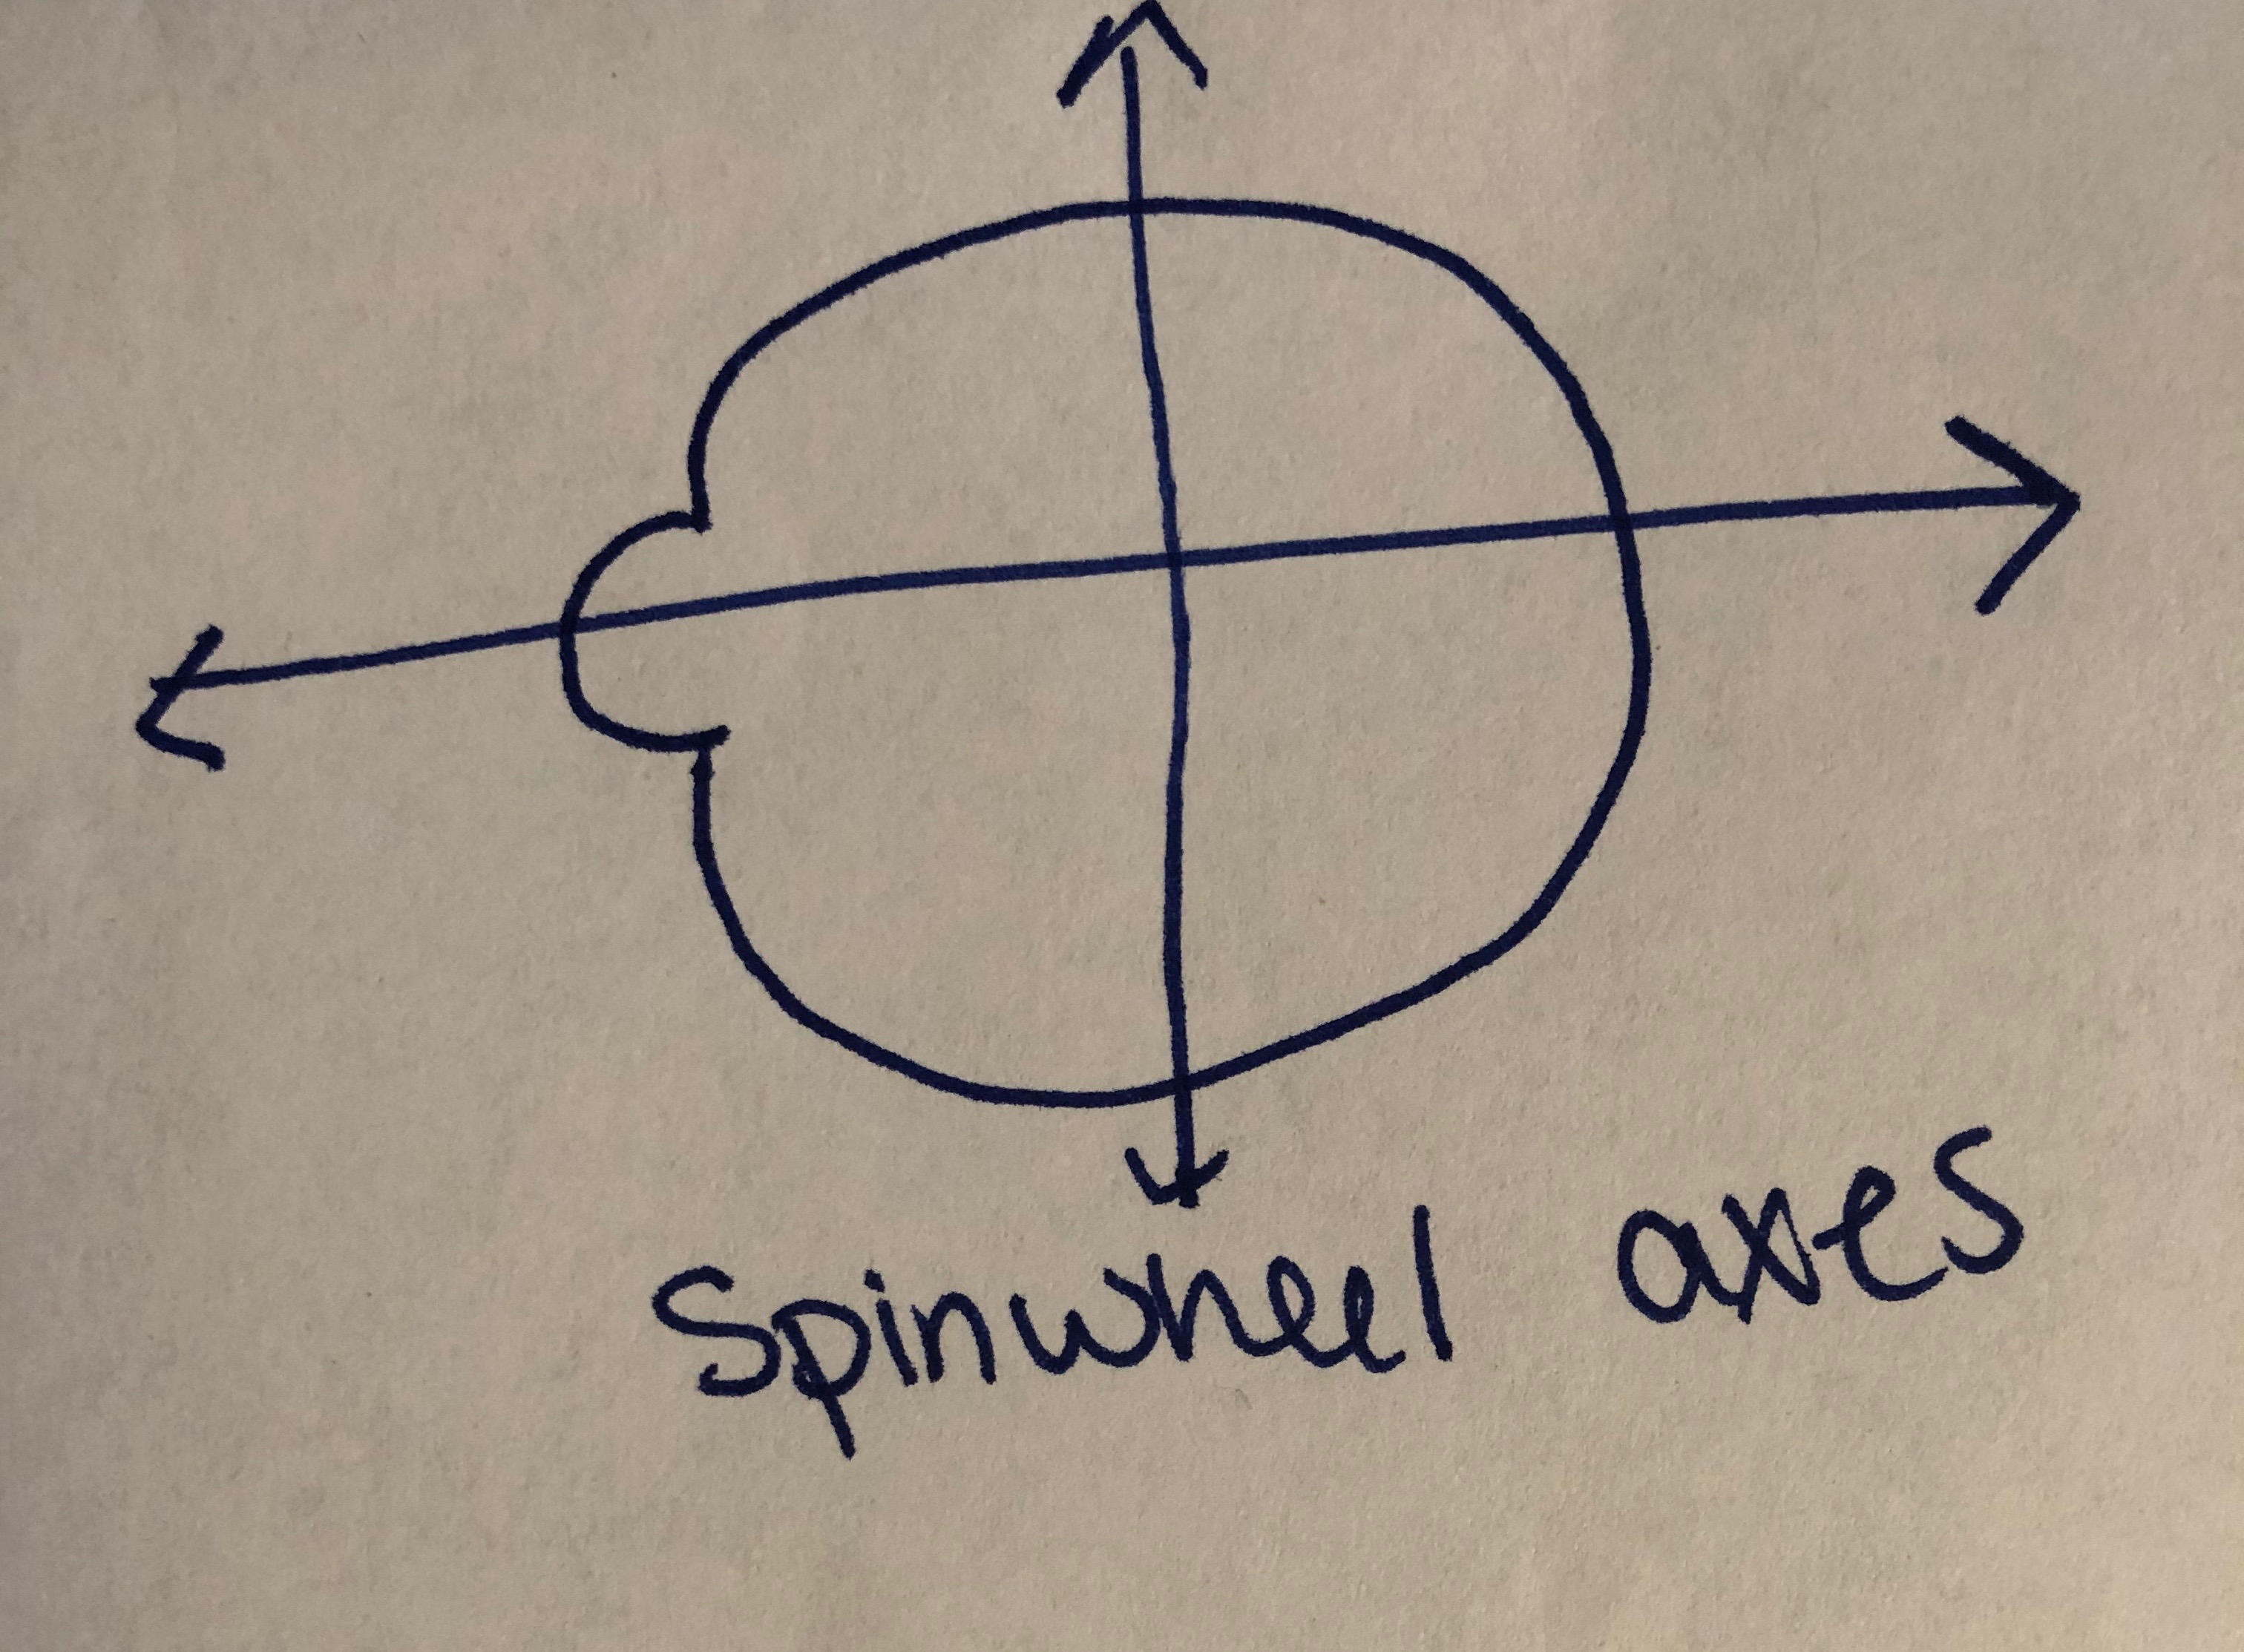 Spinwheel axes